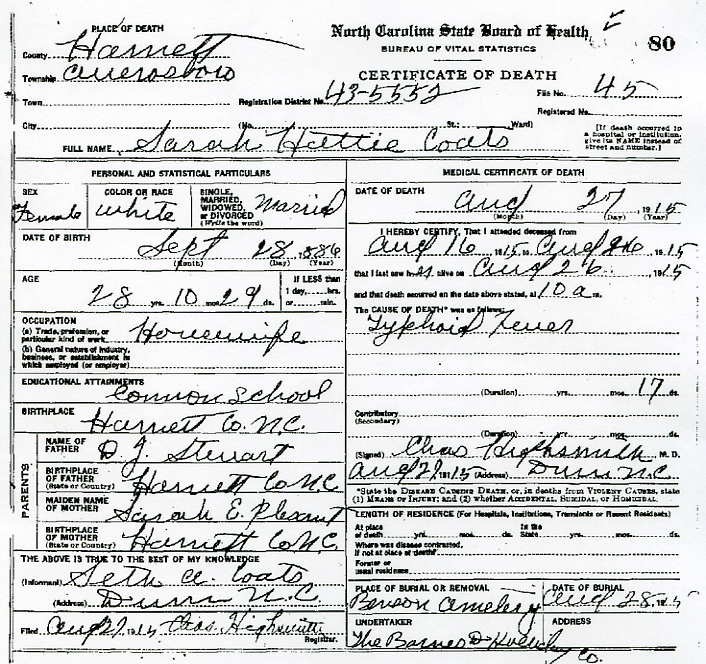 PLACE OF DEATH
County Harnett
Township Averasboro
Town
City
North Carolina State Board of Health
BUREAU OF VITAL STATISTICS
80
CERTIFICATE OF DEATH
Registration District No. 43-5552
File No. 45
Registered No.
(No. St.; Ward)
[If death occurred in a hospital or institution, give its NAME instead of street and number.]
FULL NAME Sarah Hattie Coats
PERSONAL AND STATISTICAL PARTICULARS
SEX
Female
COLOR OR RACE
White
SINGLE, MARRIED, WIDOWED, or DIVORCED (Write the word)
Married
DATE OF BIRTH
Sept 28, 1886
(Month) (Day) (Year)
AGE
28 yrs. 10 mos. 29 ds.
If LESS than 1 day, hrs. or min.
OCCUPATION
(a) Trade, profession, or particular kind of work
Housewife
(b) General nature of industry, business, or establishment in which employed (or employer)
EDUCATIONAL ATTAINMENTS
Common School
BIRTHPLACE
Harnett Co. N.C.
PARENTS
NAME OF FATHER
D. J. Stewart
BIRTHPLACE OF FATHER (State or Country)
Harnett Co NC
MAIDEN NAME OF MOTHER
Sarah E.
BIRTHPLACE OF MOTHER (State or Country)
Harnett Co NC.
THE ABOVE IS TRUE TO THE BEST OF MY KNOWLEDGE
(Informant) Seth A. Coats
(Address) Dunn N.C.
Filed Aug 27 1915 Chas. Highsmith
Registrar.
MEDICAL CERTIFICATE OF DEATH
DATE OF DEATH
Aug 27, 1915
(Month) (Day) (Year)
I HEREBY CERTIFY, That I attended deceased from
Aug 16 1915 to Aug 26 1915
that I last saw her alive on Aug 26 1915
and that death occurred on the date above stated, at 10 a m.
The CAUSE OF DEATH* was as follows:
Typhoid Fever
(Duration) yrs. mos. 17 ds.
Contributory
(Secondary)
(Duration) yrs. mos. ds.
(Signed) Chas Highsmith M. D.
Aug 27 1915 (Address) Dunn N.C.
*State the DISEASE CAUSING DEATH, or, in deaths from VIOLENT CAUSES, state
(1) MEANS OF INJURY; and (2) whether ACCIDENTAL, SUICIDAL, or HOMICIDAL
LENGTH OF RESIDENCE (For Hospitals, Institutions, Transients or Recent Residents)
At place of death yrs. mos. ds. In the State yrs. mos. ds.
Where was disease contracted,
If not at place of death?
Former or
usual residence
PLACE OF BURIAL OR REMOVAL
Benson Cemetery
DATE OF BURIAL
Aug 28 1915
UNDERTAKER
The Barnes &
Co.
ADDRESS